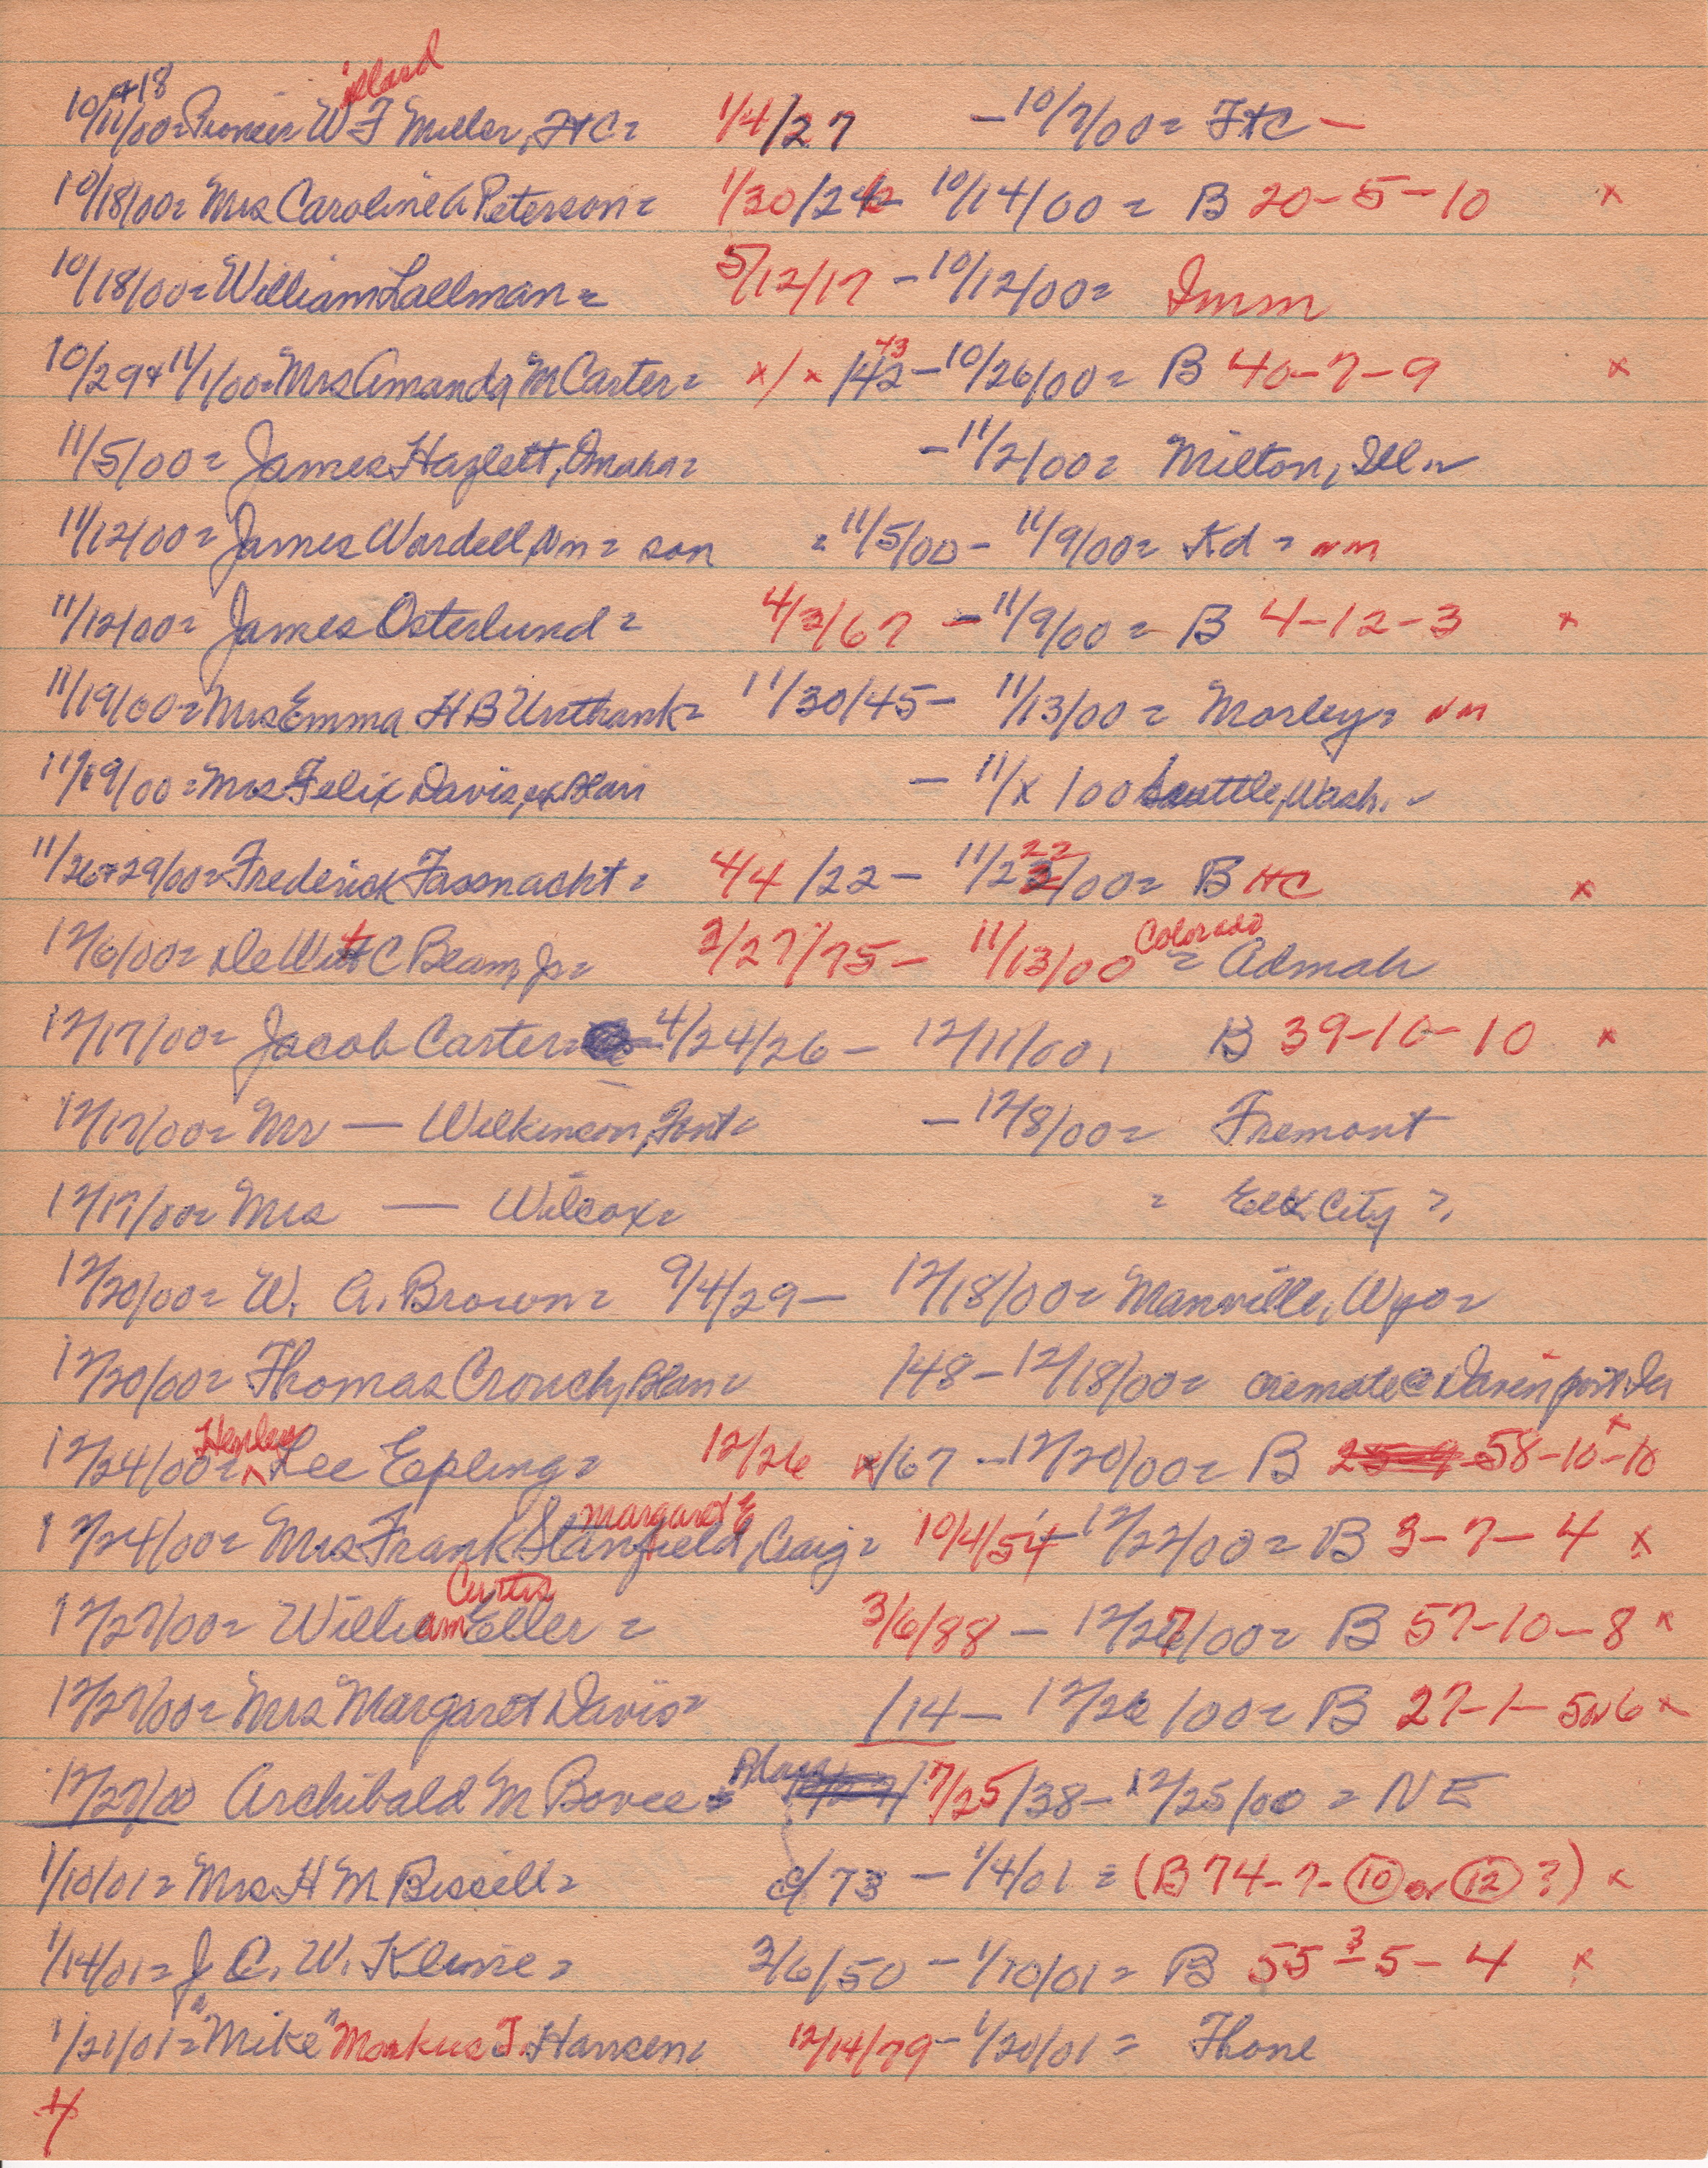 10/11+18/00= Pioneer Willard F Miller, FtC= 1/4/27 - 10/7/00= FtC -
10/18/00= Mrs Caroline A Peterson= 1/30/22 10/14/00= B 20-5-10 x
10/18/00= William Lallman= 5/12/17 - 10/12/00= Imm
10/29+11/1/00= Mrs Amanda M Carter= x/x/42 43 - 10/26/00= B 40-7-9 x
11/5/00= James Hazlett, Omaha= - 11/2/00= Milton, Ill.
11/12/00= James Wardell, nm= son = 11/5/00 - 11/9/00= Kd= nm
11/12/00= James Osterlund= 4/3/67 - 11/9/00= B 4-12-3 x
11/19/00= Mrs Emma H B Unthank= 11/30/45 - 11/13/00= Morley= nm
11/19/00= Mrs Felix Davis, ex Blair - 11/x/00 Seattle, Wash.
11/26+29/00= Frederick Fassnacht= 4/4/22 - 11/22/00= B HC x
12/6/00= DeWitt C Beam, Jr= 2/27/75 - 11/13/00 Colorado = Admah
12/17/00= Jacob Carter= 4/24/26 - 12/11/00, B 39-10-10 x
12/17/00= Mr — Wilkinson, Font= - 12/8/00= Fremont
12/17/00= Mrs — Wilcox= = Elk City ?,
12/20/00= W. A. Brown= 9/4/29 - 12/18/00= Manville, Wyo=
12/20/00= Thomas Crouch, Blair= /48 - 12/18/00= cremate @ Davenport Ia
12/24/00= Henley Lee Epling= 12/26 x/67 - 12/20/00= B 58-10-10 x
12/24/00= Mrs Frank Margaret E Stanfield, Craig= 10/4/54 12/22/00= B 3-7-4 x
12/27/00= William Curtis Eller= 3/6/88 - 12/27/00= B 57-10-8 x
12/27/00= Mrs Margaret Davis= /14 - 12/26/00= B 27-1-5 or 6 x
12/27/00 Archibald M Bovee= Blair 7/25/38 - 12/25/00= NE
1/10/01= Mrs H M Bissell= /73 - 1/4/01= (B 74-7-10 or 12 ?) x
1/14/01= J C. W. Kline= 3/6/50 - 1/10/01= B 55-3 5-4 x
1/21/01= "Mike" Markus J. Hansen= 12/14/79 - 1/20/01= Fhone
4